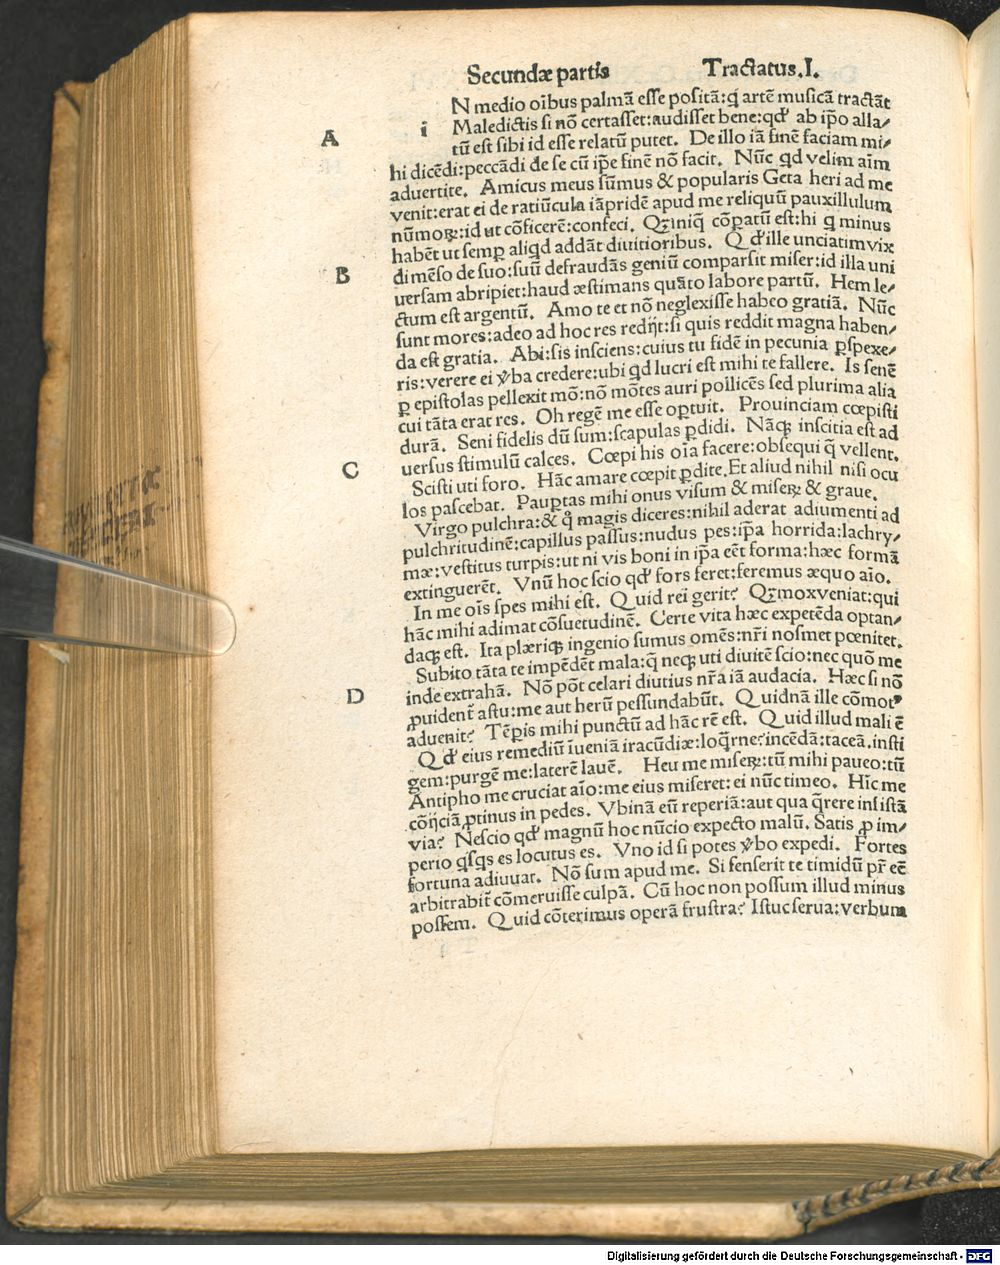 Secundæ partis Tractatus.I.
N medio oībus palmā esse positā:q̄ artē musicā tractāt
A i Maledictis si nō certasset:audisset bene:qđ ab ip̄o alla/
tū est sibi id esse relatū putet. De illo iā finē faciam mi/
hi dicēdi:peccādi de se cū ip̄e finē nō facit. Nūc qd velim aīm
aduertite. Amicus meus sūmus & popularis Geta heri ad me
venit:erat ei de ratiūcula iāpridē apud me reliquū pauxillulum
nūmoꝝ:id ut cōficerē:confeci. Qꝫiniq̄ cōꝑatū est:hi q̄ minus
habēt ut semꝑ aliqd addāt diuitioribus. Qđ ille unciatim vix
B dimēso de suo:suū defraudās geniū comparsit miser:id illa uni
uersam abripiet:haud æstimans quāto labore partū. Hem le/
ctum est argentū. Amo te et nō neglexisse habeo gratiā. Nūc
sunt mores:adeo ad hoc res redijt:si quis reddit magna haben/
da est gratia. Abi:sis insciens:cuius tu fidē in pecunia ꝑspexe/
ris:verere ei ꝟba credere:ubi qd lucri est mihi te fallere. Is senē
ꝑ epistolas pellexit mō:nō mōtes auri pollicēs sed plurima alia
cui tāta erat res. Oh regē me esse oꝑtuit. Prouinciam cœpisti
durā. Seni fidelis dū sum:scapulas ꝑdidi. Nāqꝫ inscitia est ad
C uersus stimulū calces. Cœpi his oīa facere:obsequi q̄ vellent.
Scisti uti foro. Hāc amare cœpit ꝑdite.Et aliud nihil nisi ocu
los pascebat. Pauꝑtas mihi onus visum & miseꝝ & graue.
Virgo pulchra:& q̊ magis diceres:nihil aderat adiumenti ad
pulchritudinē:capillus passus:nudus pes:ip̄a horrida:lachry/
mæ:vestitus turpis:ut ni vis boni in ip̄a eēt forma:hæc formā
extinguerēt. Vnū hoc scio qđ fors feret:feremus æquo aīo.
In me oīs spes mihi est. Quid rei gerit? Qꝫmoxveniat:qui
hāc mihi adimat cōsuetudinē. Certe vita hæc expetēda optan/
daqꝫ est. Ita plæriqꝫ ingenio sumus omēs:nr̄i nosmet pœnitet.
Subito tāta te impēdēt mala:q̄ neqꝫ uti diuitē scio:nec quō me
D inde extrahā. Nō pōt celari diutius nr̄a iā audacia. Hæc si nō
ꝓuidenť astu:me aut herū pessundabūt. Quidnā ille cōmotꝰ
aduenit? Tēꝑis mihi punctū ad hāc rē est. Quid illud mali ē
Qđ eius remediū īueniā iracūdiæ:loq̄rne?incēdā:taceā.insti
gem:purgē me:laterē lauē. Heu me miseꝝ:tū mihi paueo:tū
Antipho me cruciat aīo:me eius miseret: ei nūc timeo. Hīc me
cōijciā ꝓtinus in pedes. Vbinā eū reperiā:aut qua q̄rere insistā
via? Nescio qđ magnū hoc nūcio expecto malū. Satis ꝓ im/
perio qsqs es locutus es. Vno id si potes ꝟbo expedi. Fortes
fortuna adiuuat. Nō sum apud me. Si senserit te timidū pr̄ eē
arbitrabiť cōmeruisse culpā. Cū hoc non possum illud minus
possem. Quid cōterimus operā frustra? Istuc serua:verbum
Digitalisierung gefördert durch die Deutsche Forschungsgemeinschaft - DFG